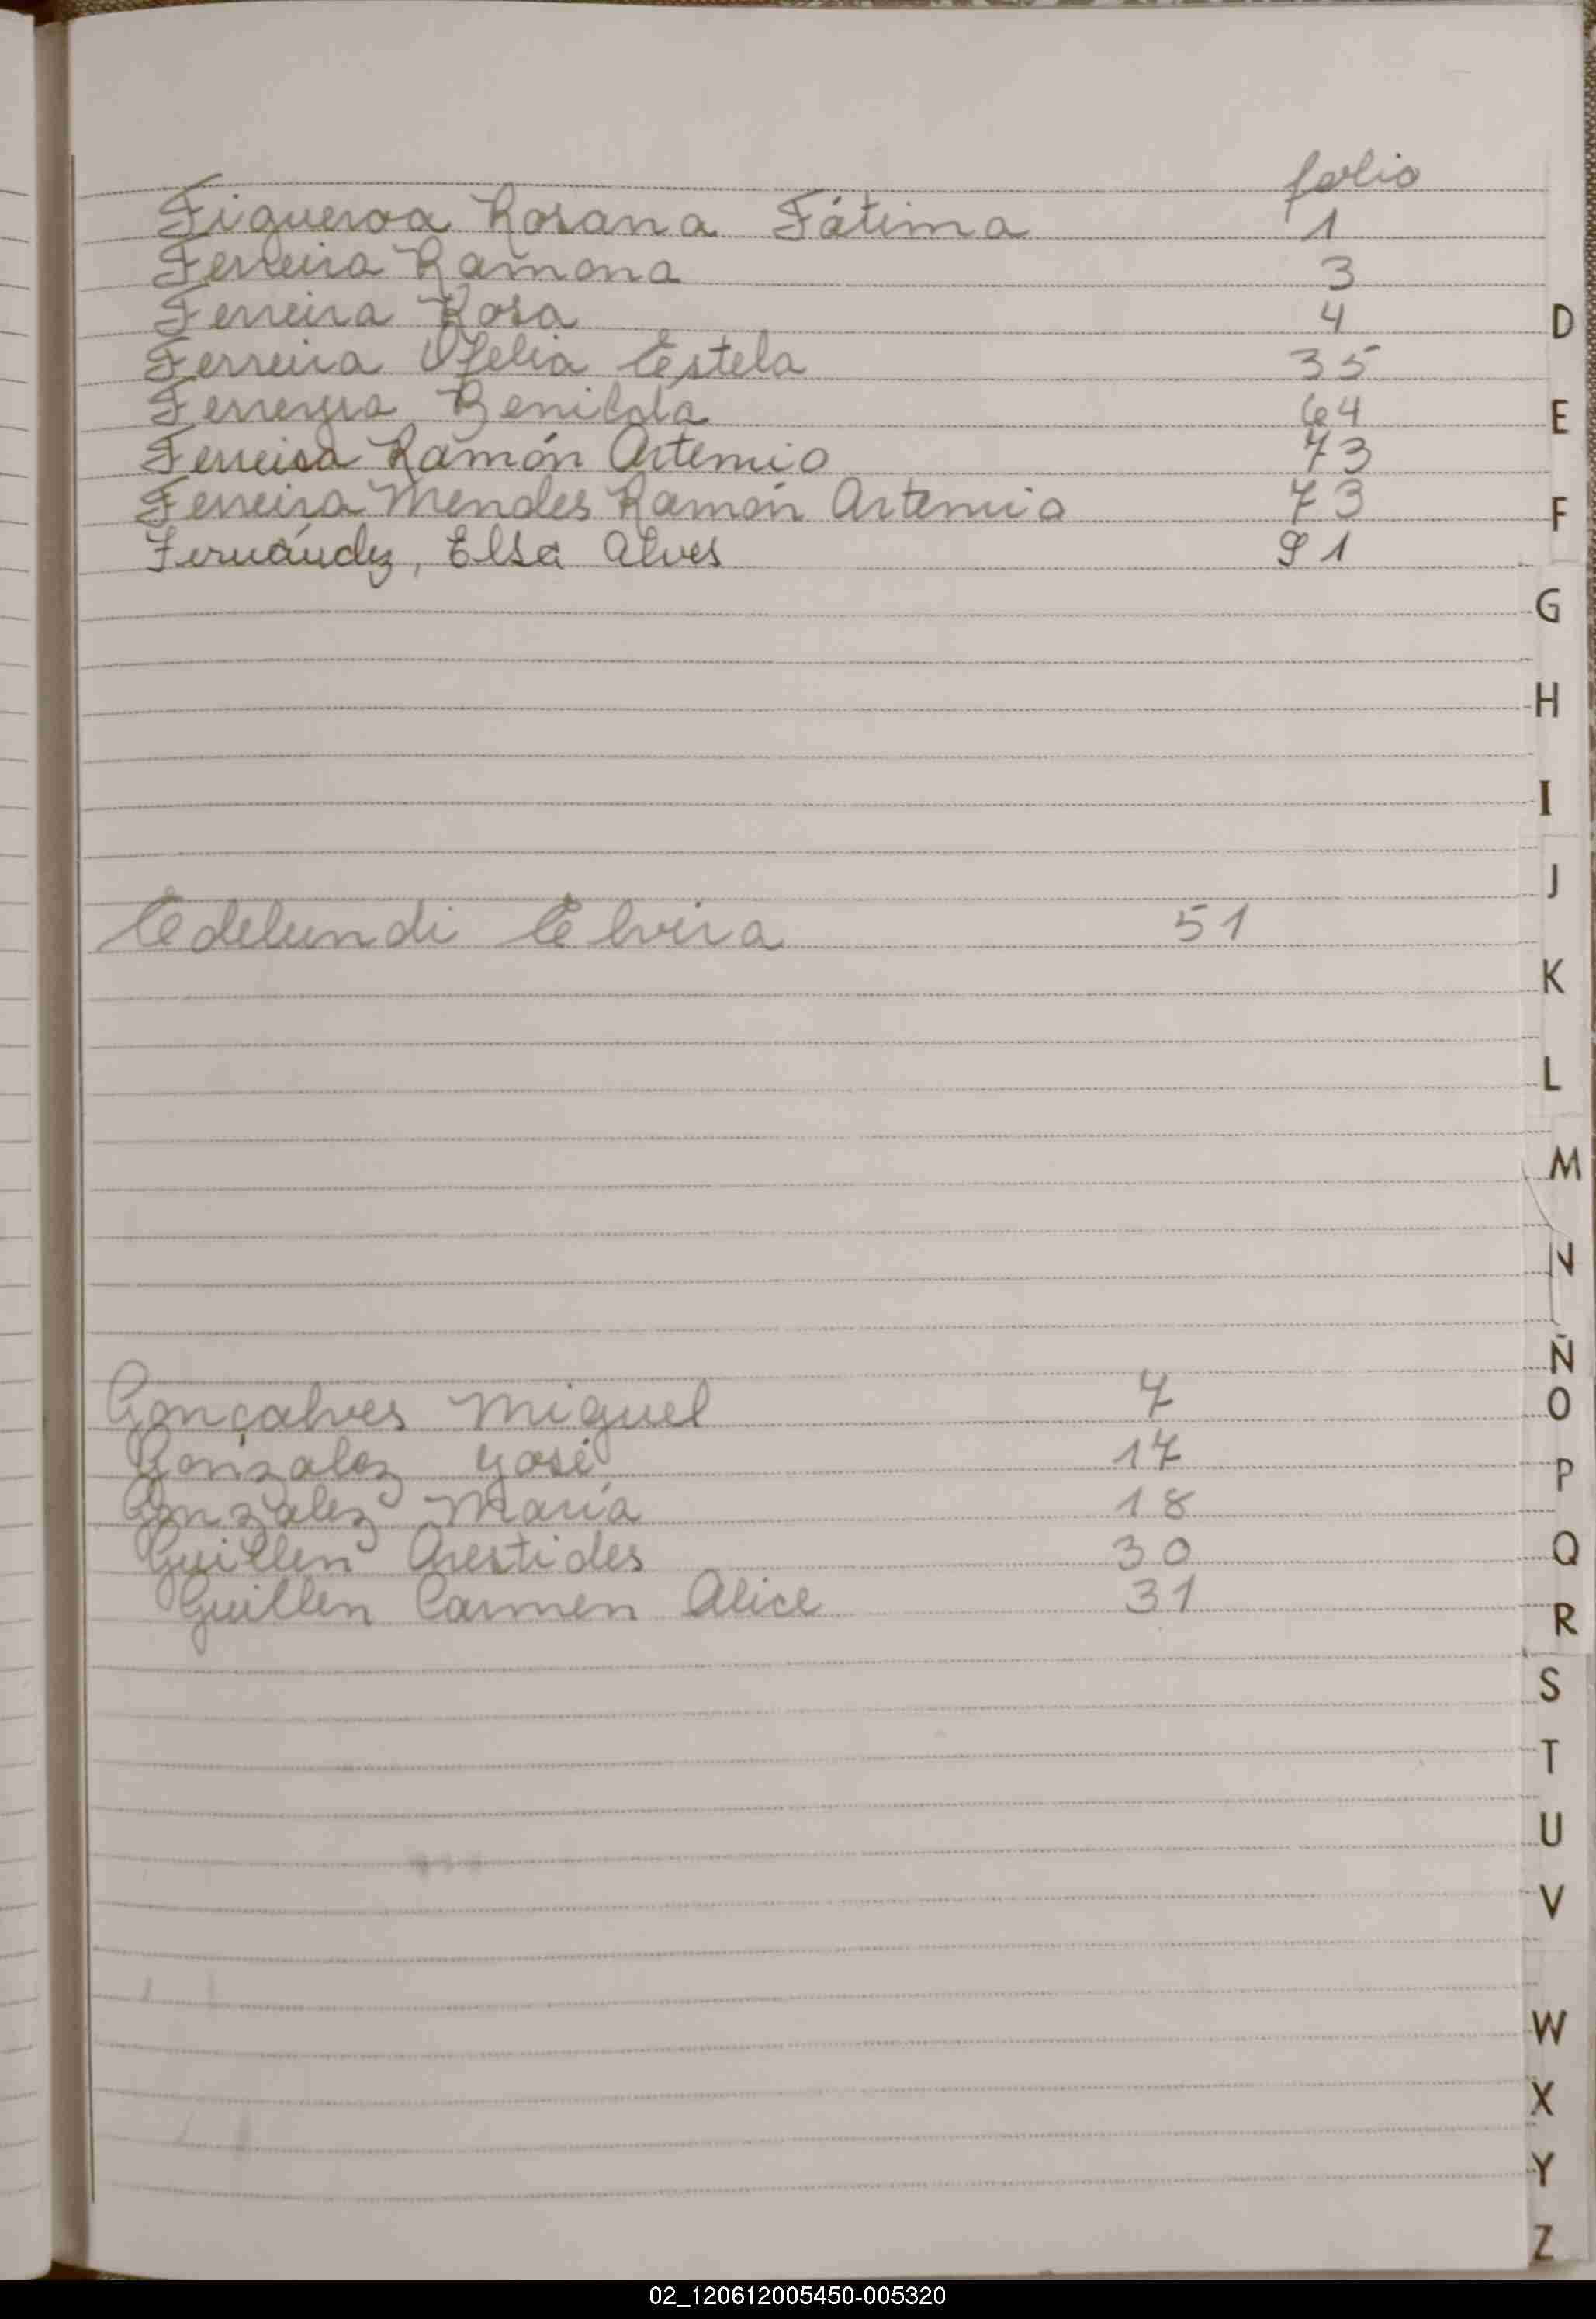 folio
Figueroa Rosana Fátima 1
Ferreira Ramona 3
Ferreira Rosa 4
Ferreira Ofelia Estela 35
Ferreyra Benilda 64
Ferreira Ramón Artemio 73
Ferreira Mendes Ramón Artemio 73
Fernández, Elsa Alves 91
Edelundi Elvira 51
Gonçalves Miguel 7
Gonzalez José 17
Gonzalez María 18
Guillen Arestides 30
Guillen Carmen Alice 31
D
E
F
G
H
I
J
K
L
M
N
Ñ
O
P
Q
R
S
T
U
V
W
X
Y
Z
02_120612005450-005320